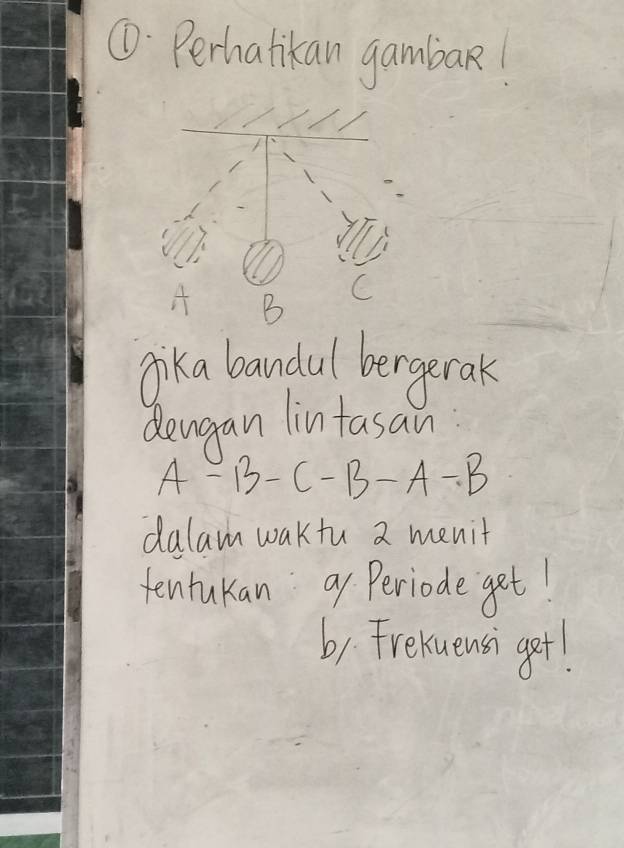 ①. Perhatikan gambar!
A
B
C
Jika bandul bergerak
dengan lintasan :
A - B - C - B - A - B
dalam waktu 2 menit
tentukan : a/. Periode get!
b/. Frekuensi get!